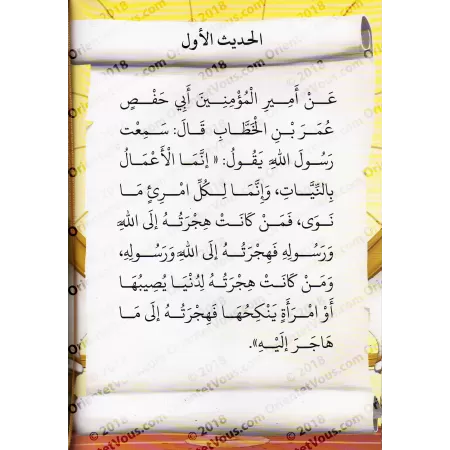 الحديث الأول
عَنْ أَمِيرِ الْمُؤْمِنِينَ أَبِي حَفْصٍ
عُمَرَ بْنِ الْخَطَّابِ قَالَ: سَمِعْت
رَسُولَ اللهِ يَقُولُ: « إِنَّمَا الْأَعْمَالُ
بِالنِّيَّاتِ، وَإِنَّمَا لِكُلِّ امْرِئٍ مَا
نَوَى، فَمَنْ كَانَتْ هِجْرَتُهُ إلَى اللهِ
وَرَسُولِهِ فَهِجْرَتُهُ إلَى اللهِ وَرَسُولِهِ،
وَمَنْ كَانَتْ هِجْرَتُهُ لِدُنْيَا يُصِيبُهَا
أَوْ امْرَأَةٍ يَنْكِحُهَا فَهِجْرَتُهُ إلَى مَا
هَاجَرَ إلَيْهِ».
© 2018 OrientetVous.com